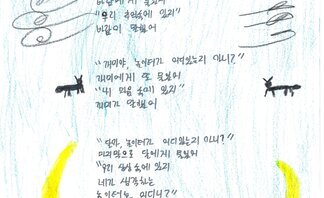 바람에게 물었어
"우리 추억속에 있지"
바람이 말했어
"개미야, 놀이터가 어디있는지 아니?"
개미에게 또 물었어
"니 마음 속에 있지"
개미가 말했어
"달아, 놀이터가 어디있는지 아니?"
마지막으로 달에게 물었어
"우리 상상 속에 있지
네가 생각하는
놀이터는 어디니?"